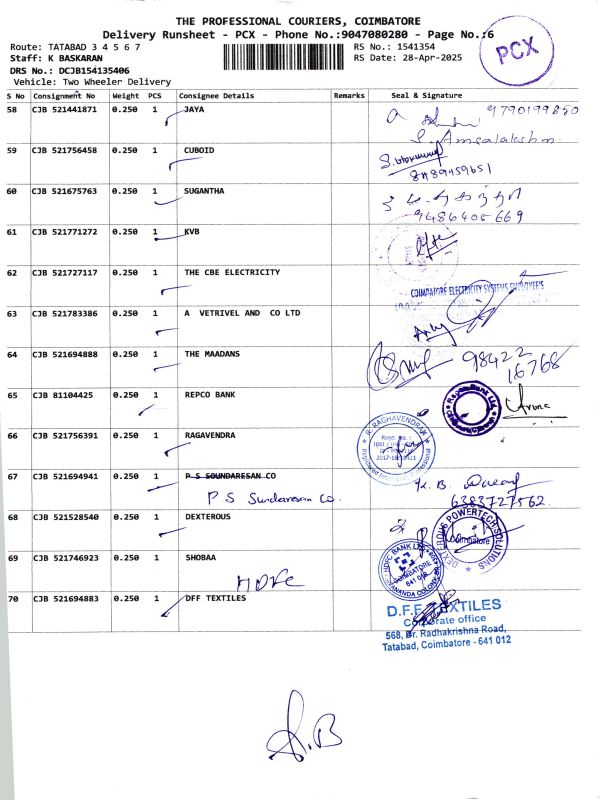 THE PROFESSIONAL COURIERS, COIMBATORE
Delivery Runsheet - PCX - Phone No.:9047080280 - Page No.:6
Route: TATABAD 3 4 5 6 7
RS No.: 1541354
PCX
Staff: K BASKARAN
RS Date: 28-Apr-2025
DRS No.: DCJB154135406
Vehicle: Two Wheeler Delivery
S No Consignment No Weight PCS Consignee Details Remarks Seal & Signature
58 CJB 521441871 0.250 1 JAYA 9790199850
S. Amsalakshm
59 CJB 521756458 0.250 1 CUBOID
8489459651
60 CJB 521675763 0.250 1 SUGANTHA
9486405669
61 CJB 521771272 0.250 1 KVB
62 CJB 521727117 0.250 1 THE CBE ELECTRICITY
COIMBATORE ELECTRICITY SYSTEMS EMPLOYEE'S
63 CJB 521783386 0.250 1 A VETRIVEL AND CO LTD
64 CJB 521694888 0.250 1 THE MAADANS 98422
16768
65 CJB 81104425 0.250 1 REPCO BANK Repco Bank Ltd. Aruna
66 CJB 521756391 0.250 1 RAGAVENDRA R. RAGHAVENDRAN
Regd. No.:
67 CJB 521694941 0.250 1 P S SOUNDARESAN CO
P S Sundaresan Co.
K. B.
6383727562
68 CJB 521528540 0.250 1 DEXTEROUS DEXTEROUS POWERTECH SOLUTIONS
Coimbatore
69 CJB 521746923 0.250 1 SHOBAA HDFC BANK LTD
COIMBATORE
641 012
HDFC
70 CJB 521694883 0.250 1 DFF TEXTILES
D.F.F. TEXTILES
Corporate office
568, Dr. Radhakrishna Road,
Tatabad, Coimbatore - 641 012